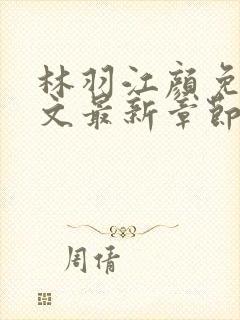 林羽江颜免
文最新章节
周倩